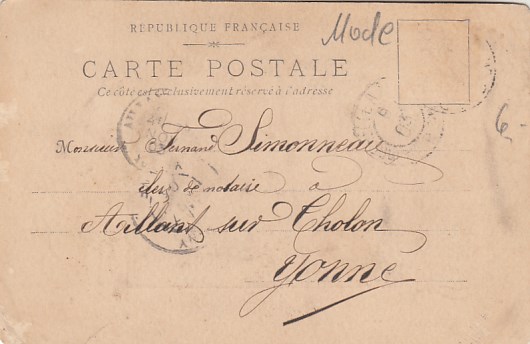 RÉPUBLIQUE FRANÇAISE
Mode
CARTE POSTALE
Ce côté est exclusivement réservé à l'adresse
6-
Monsieur Fernand Simonneau
clerc de notaire à
Aillant sur Tholon
Yonne